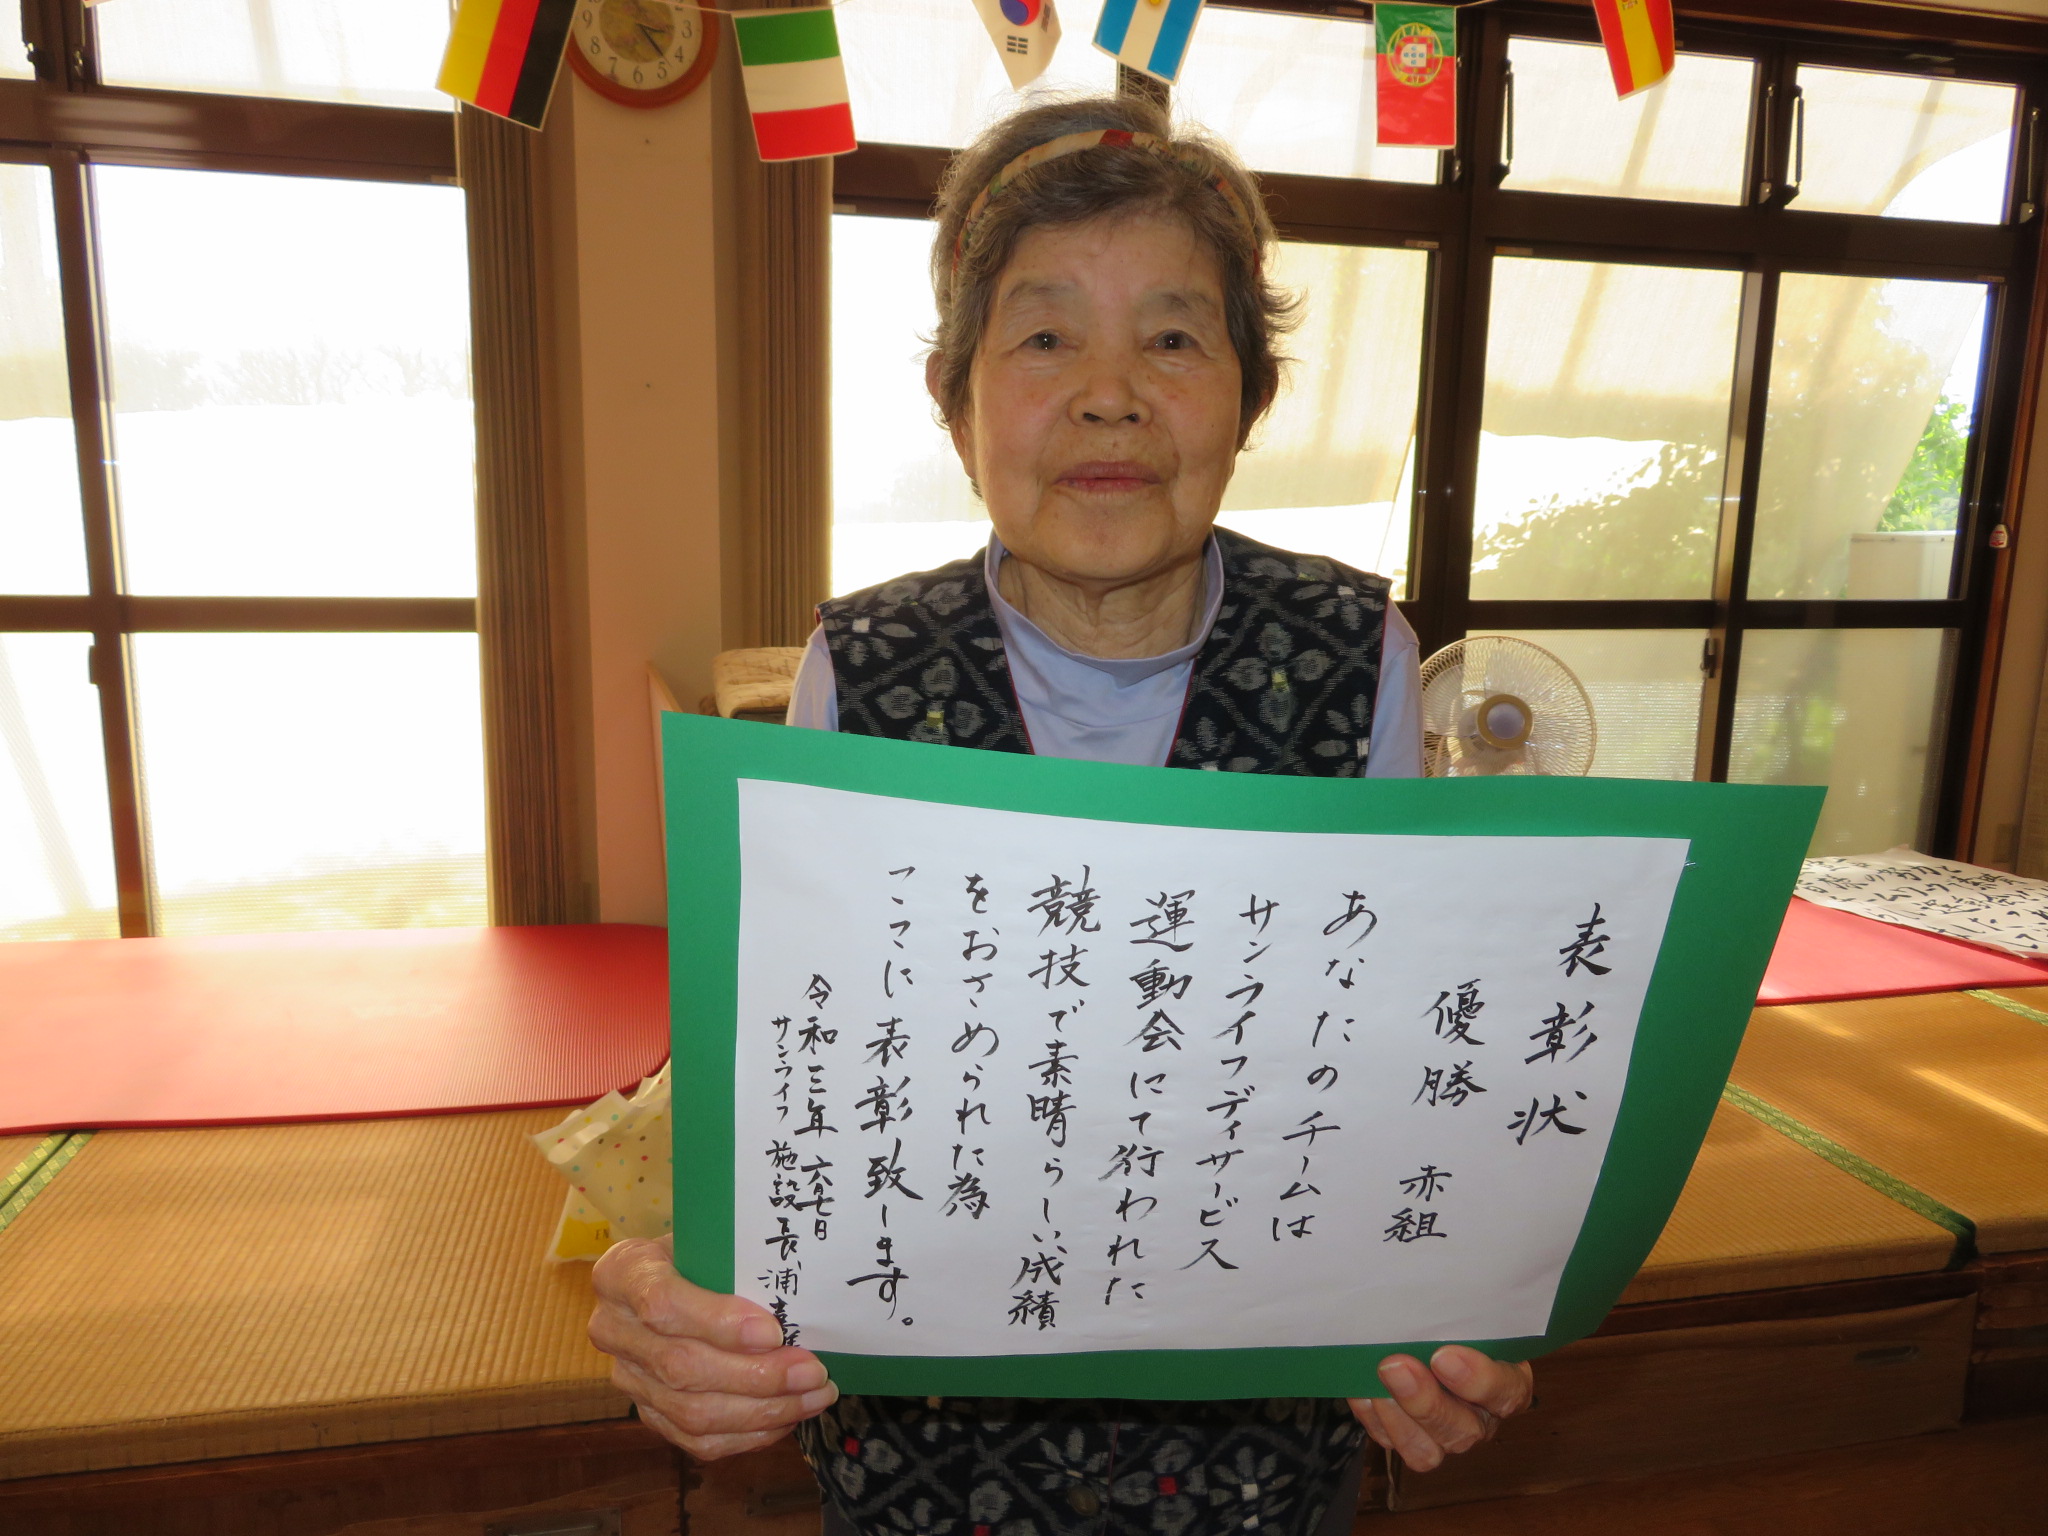 表彰状
優勝 赤組
あなたのチームは
サンライフディサービス
運動会にて行われた
競技で素晴らしい成績
をおさめられた為
ここに表彰致します。
令和三年六月七日
サンライフ施設長 浦